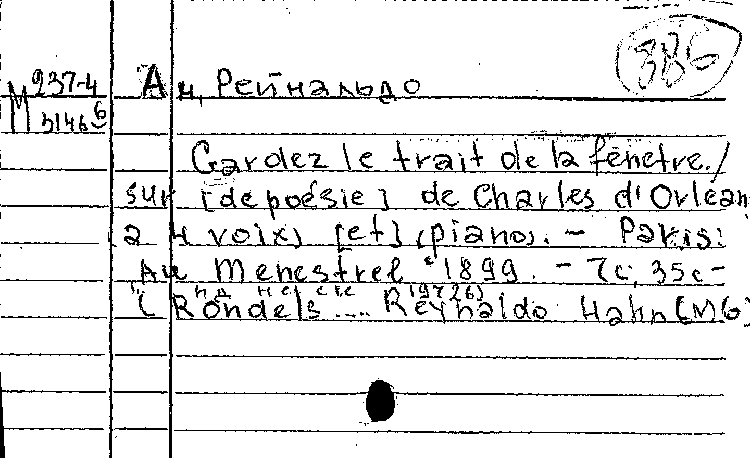 386
М 237-4
Ан, Рейнальдо
Gardez le trait de la fenetre./
sur [de poésie] de Charles d'Orlean
a 4 voix) [et] (piano). - Paris:
Au Menestrel 1899. - 7c; 35c -
(Rondels .... Reynaldo Hahn (N6)